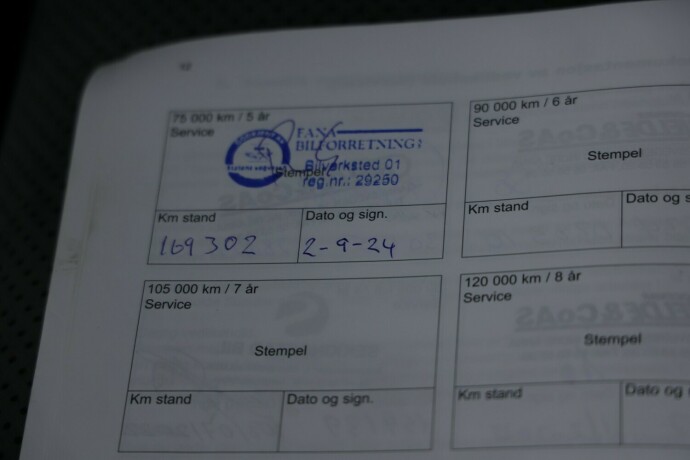 75 000 km / 5 år
Service
FANA
BILFORRETNING
Bilverksted 01
Stempel
reg.nr.: 29250
Km stand
Dato og sign.
169 302
2-9-24
90 000 km / 6 år
Service
Stempel
Km stand
Dato og s
105 000 km / 7 år
Service
Stempel
Km stand
Dato og sign.
120 000 km / 8 år
Service
Stempel
Km stand
Dato og